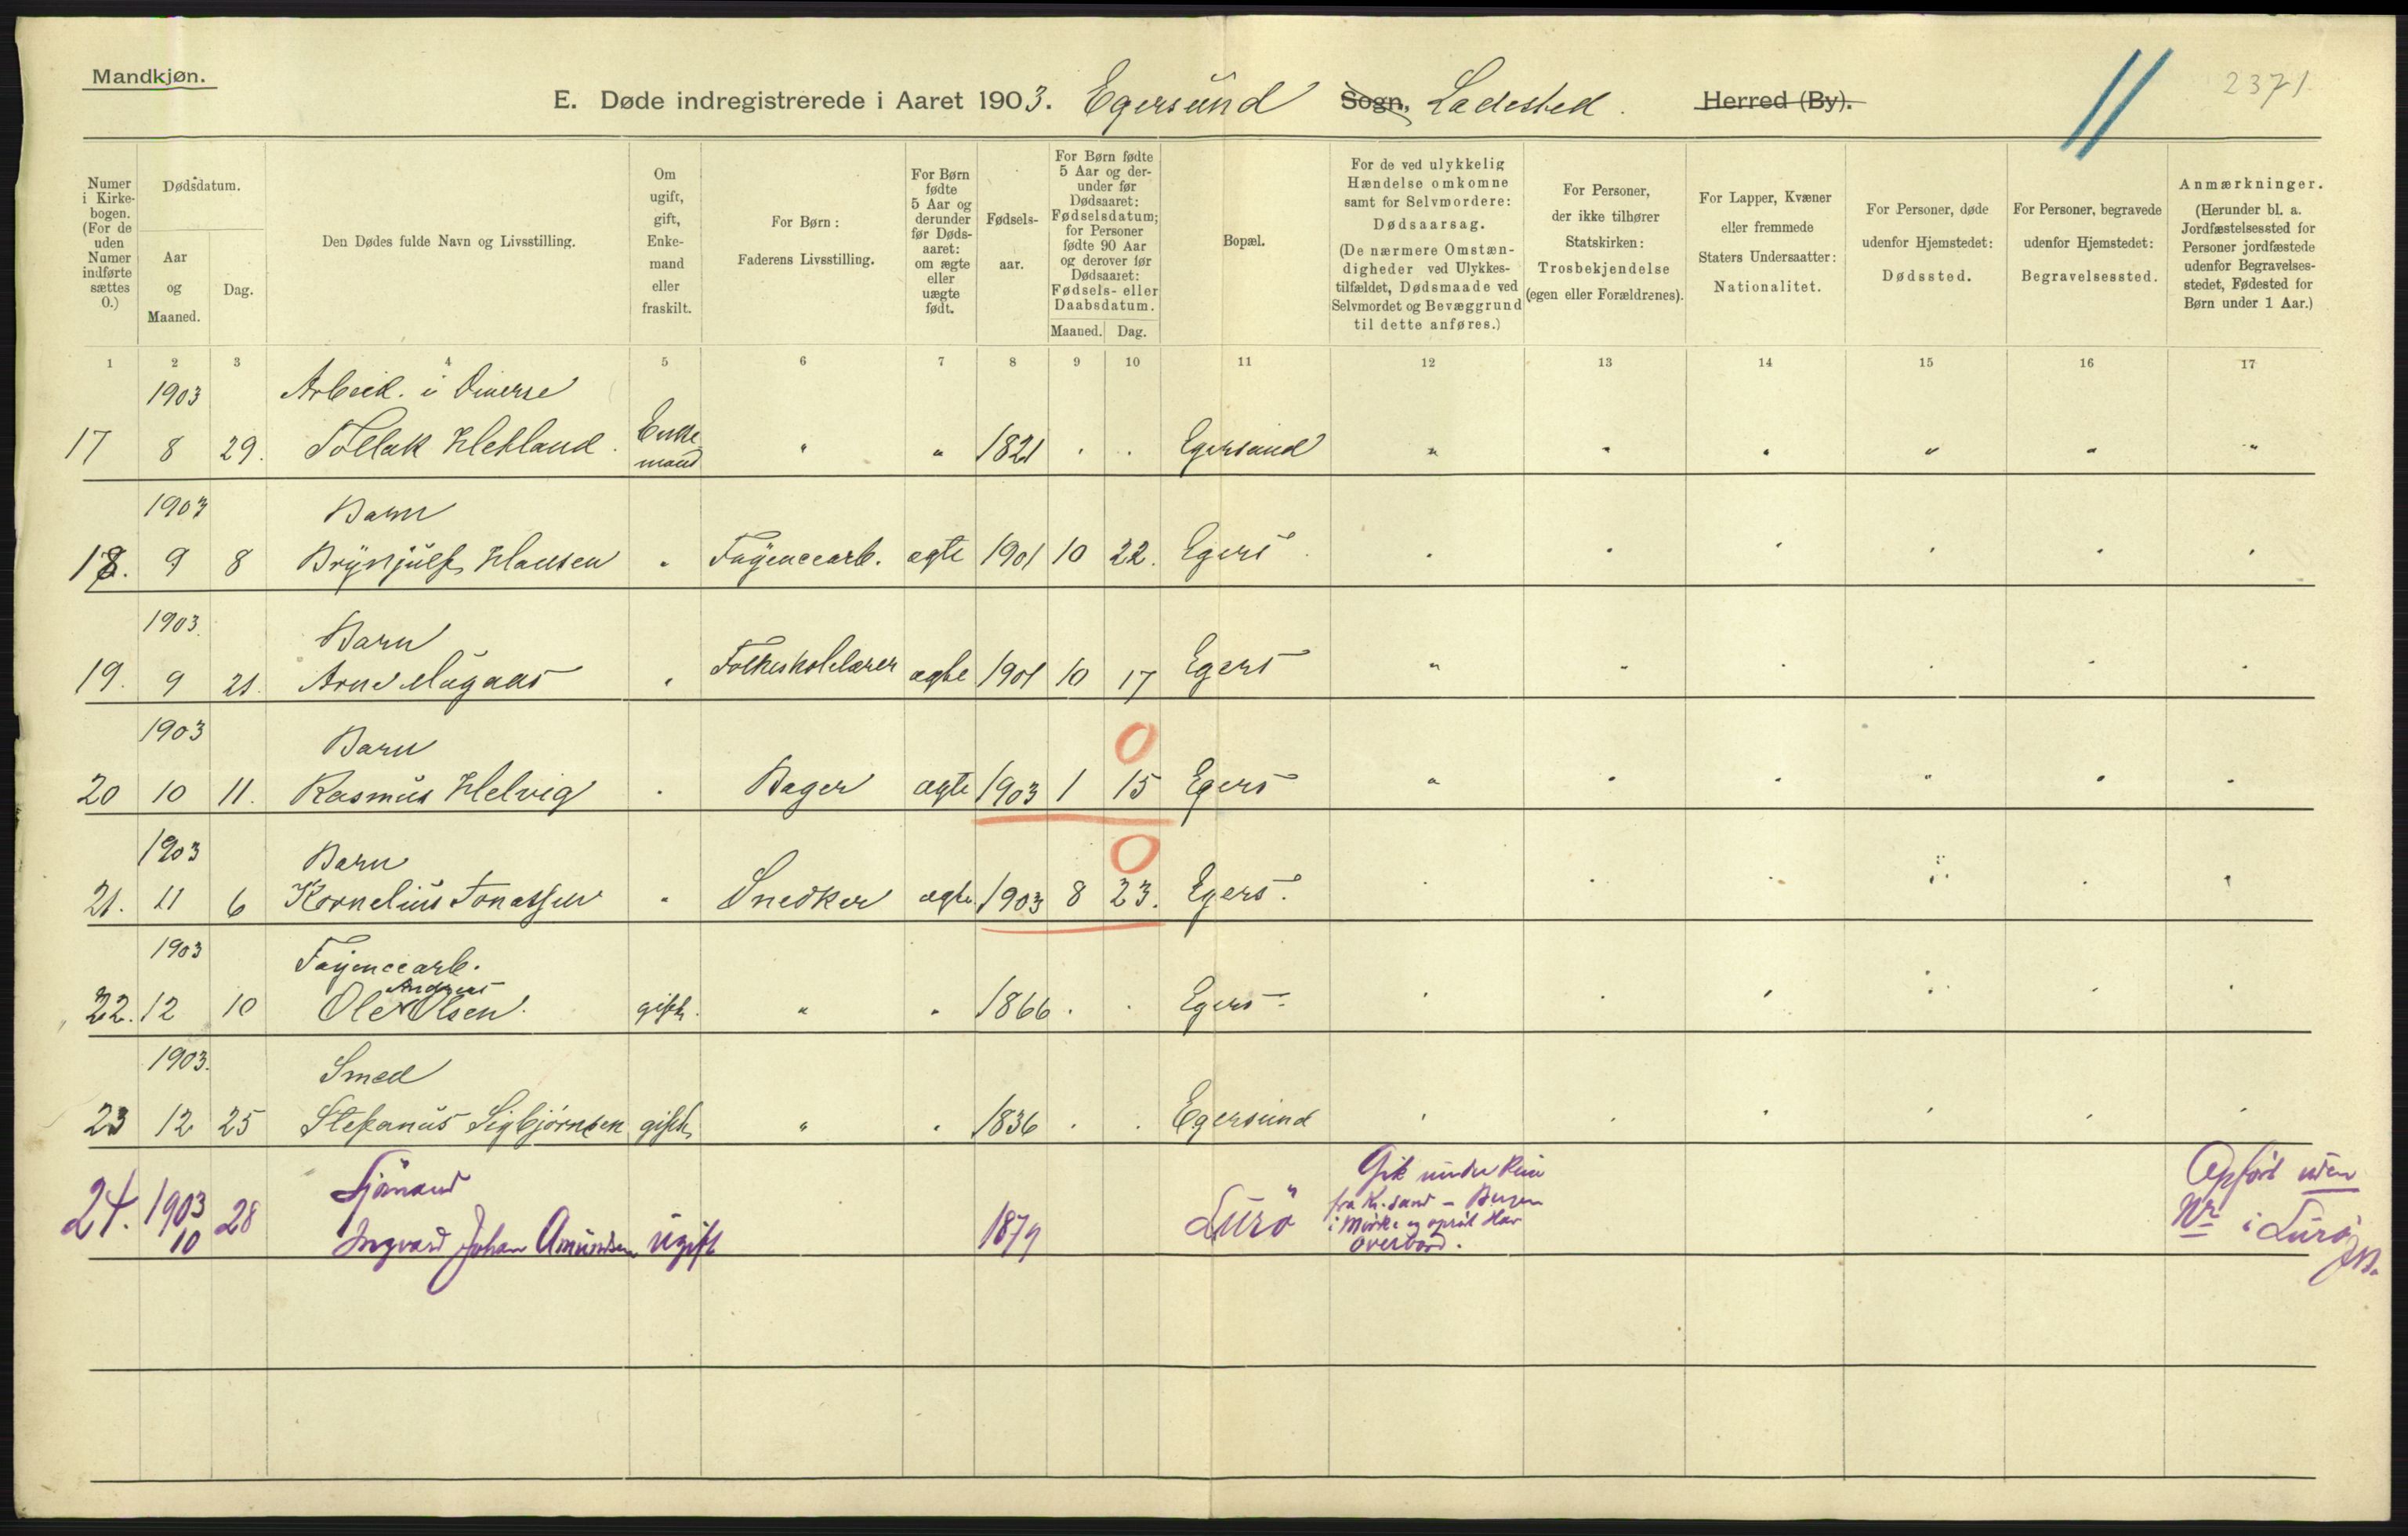 Mandkjøn.
E. Døde indregistrerede i Aaret 1903. Egersund Sogn, Ladested. Herred (By).
2371
Numer i Kirkebogen. (For de uden Numer indførte sættes 0.)
Dødsdatum.
Aar og Maaned.
Dag.
Den Dødes fulde Navn og Livsstilling.
Om ugift, gift, Enkemand eller fraskilt.
For Børn: Faderens Livsstilling.
For Børn fødte 5 Aar og derunder før Dødsaaret: om ægte eller uægte født.
Fødselsaar.
For Børn fødte 5 Aar og derunder før Dødsaaret: Fødselsdatum; for Personer fødte 90 Aar og derover før Dødsaaret: Fødsels- eller Daabsdatum.
Maaned. Dag.
Bopæl.
For de ved ulykkelig Hændelse omkomne samt for Selvmordere: Dødsaarsag. (De nærmere Omstændigheder ved Ulykkestilfældet, Dødsmaade ved Selvmordet og Bevæggrund til dette anføres.)
For Personer, der ikke tilhører Statskirken: Trosbekjendelse (egen eller Forældrenes).
For Lapper, Kvæner eller fremmede Staters Undersaatter: Nationalitet.
For Personer, døde udenfor Hjemstedet: Dødssted.
For Personer, begravede udenfor Hjemstedet: Begravelsessted.
Anmærkninger. (Herunder bl. a. Jordfæstelsessted for Personer jordfæstede udenfor Begravelsesstedet, Fødested for Børn under 1 Aar.)
1 2 3 4 5 6 7 8 9 10 11 12 13 14 15 16 17
1903 Arbeid. i Diverse
17 8 29. Tollak Hetland. Enkemand " " 1821 . . Egersund " " " " " "
1903 Barn
18. 9 8 Brynjulf Hansen " Fayencearb. ægte 1901 10 22. Egers.
1903. Barn
19. 9 21. Arne Magaas " Folkeskolelærer ægte 1901 10 17 Egers
1903 Barn 0
20 10 11. Rasmus Helvig " Bager ægte 1903 1 15 Egers
1903 Barn 0
21. 11 6 Kornelius Jonassen " Snedker ægte 1903 8 23. Egers.
1903 Fayencearb.
Andreas
22. 12 10 Ole Olsen. gift. " " 1866 . . Egers.
1903. Smed
23 12 25 Stefanus Sigbjørnsen gift " " 1836 . . Egersund
24. 1903 10 28 Sjömand
Ingvard Johan Amundsen ugift 1879 Lurö
Gik under Reise
fra Kr.sand - Bergen
i Mörke og oprört Hav
overbord.
Opfört uden
Nr i Lurö